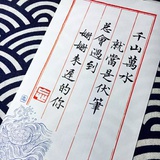 千山萬水
就當是伏筆
總會遇到
姍姍來遲的你